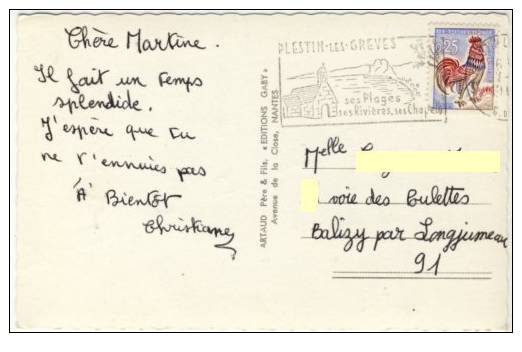 Chère Martine.
Il fait un temps
splendide.
J'espère que tu
ne t'ennuies pas
A Bientôt
Christiane
ARTAUD Père & Fils, « EDITIONS GABY »
Avenue de la Close, NANTES
PLESTIN-LES-GREVES
ses Plages
ses Rivières, ses Chapelles
25
Melle
voie des Eulettes
Balizy par Longjumeau
91